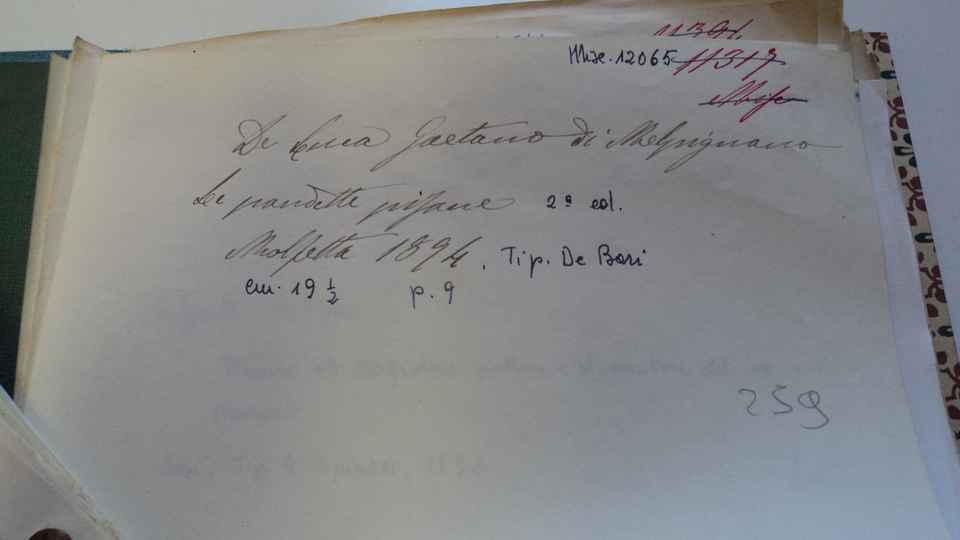 11391.
Misc. 12065 11317
De Luca Gaetano di Melpignano
Le pandette pisane 2ª ed.
Molfetta 1894. Tip. De Bari
cm. 19 ½ p. 9
259